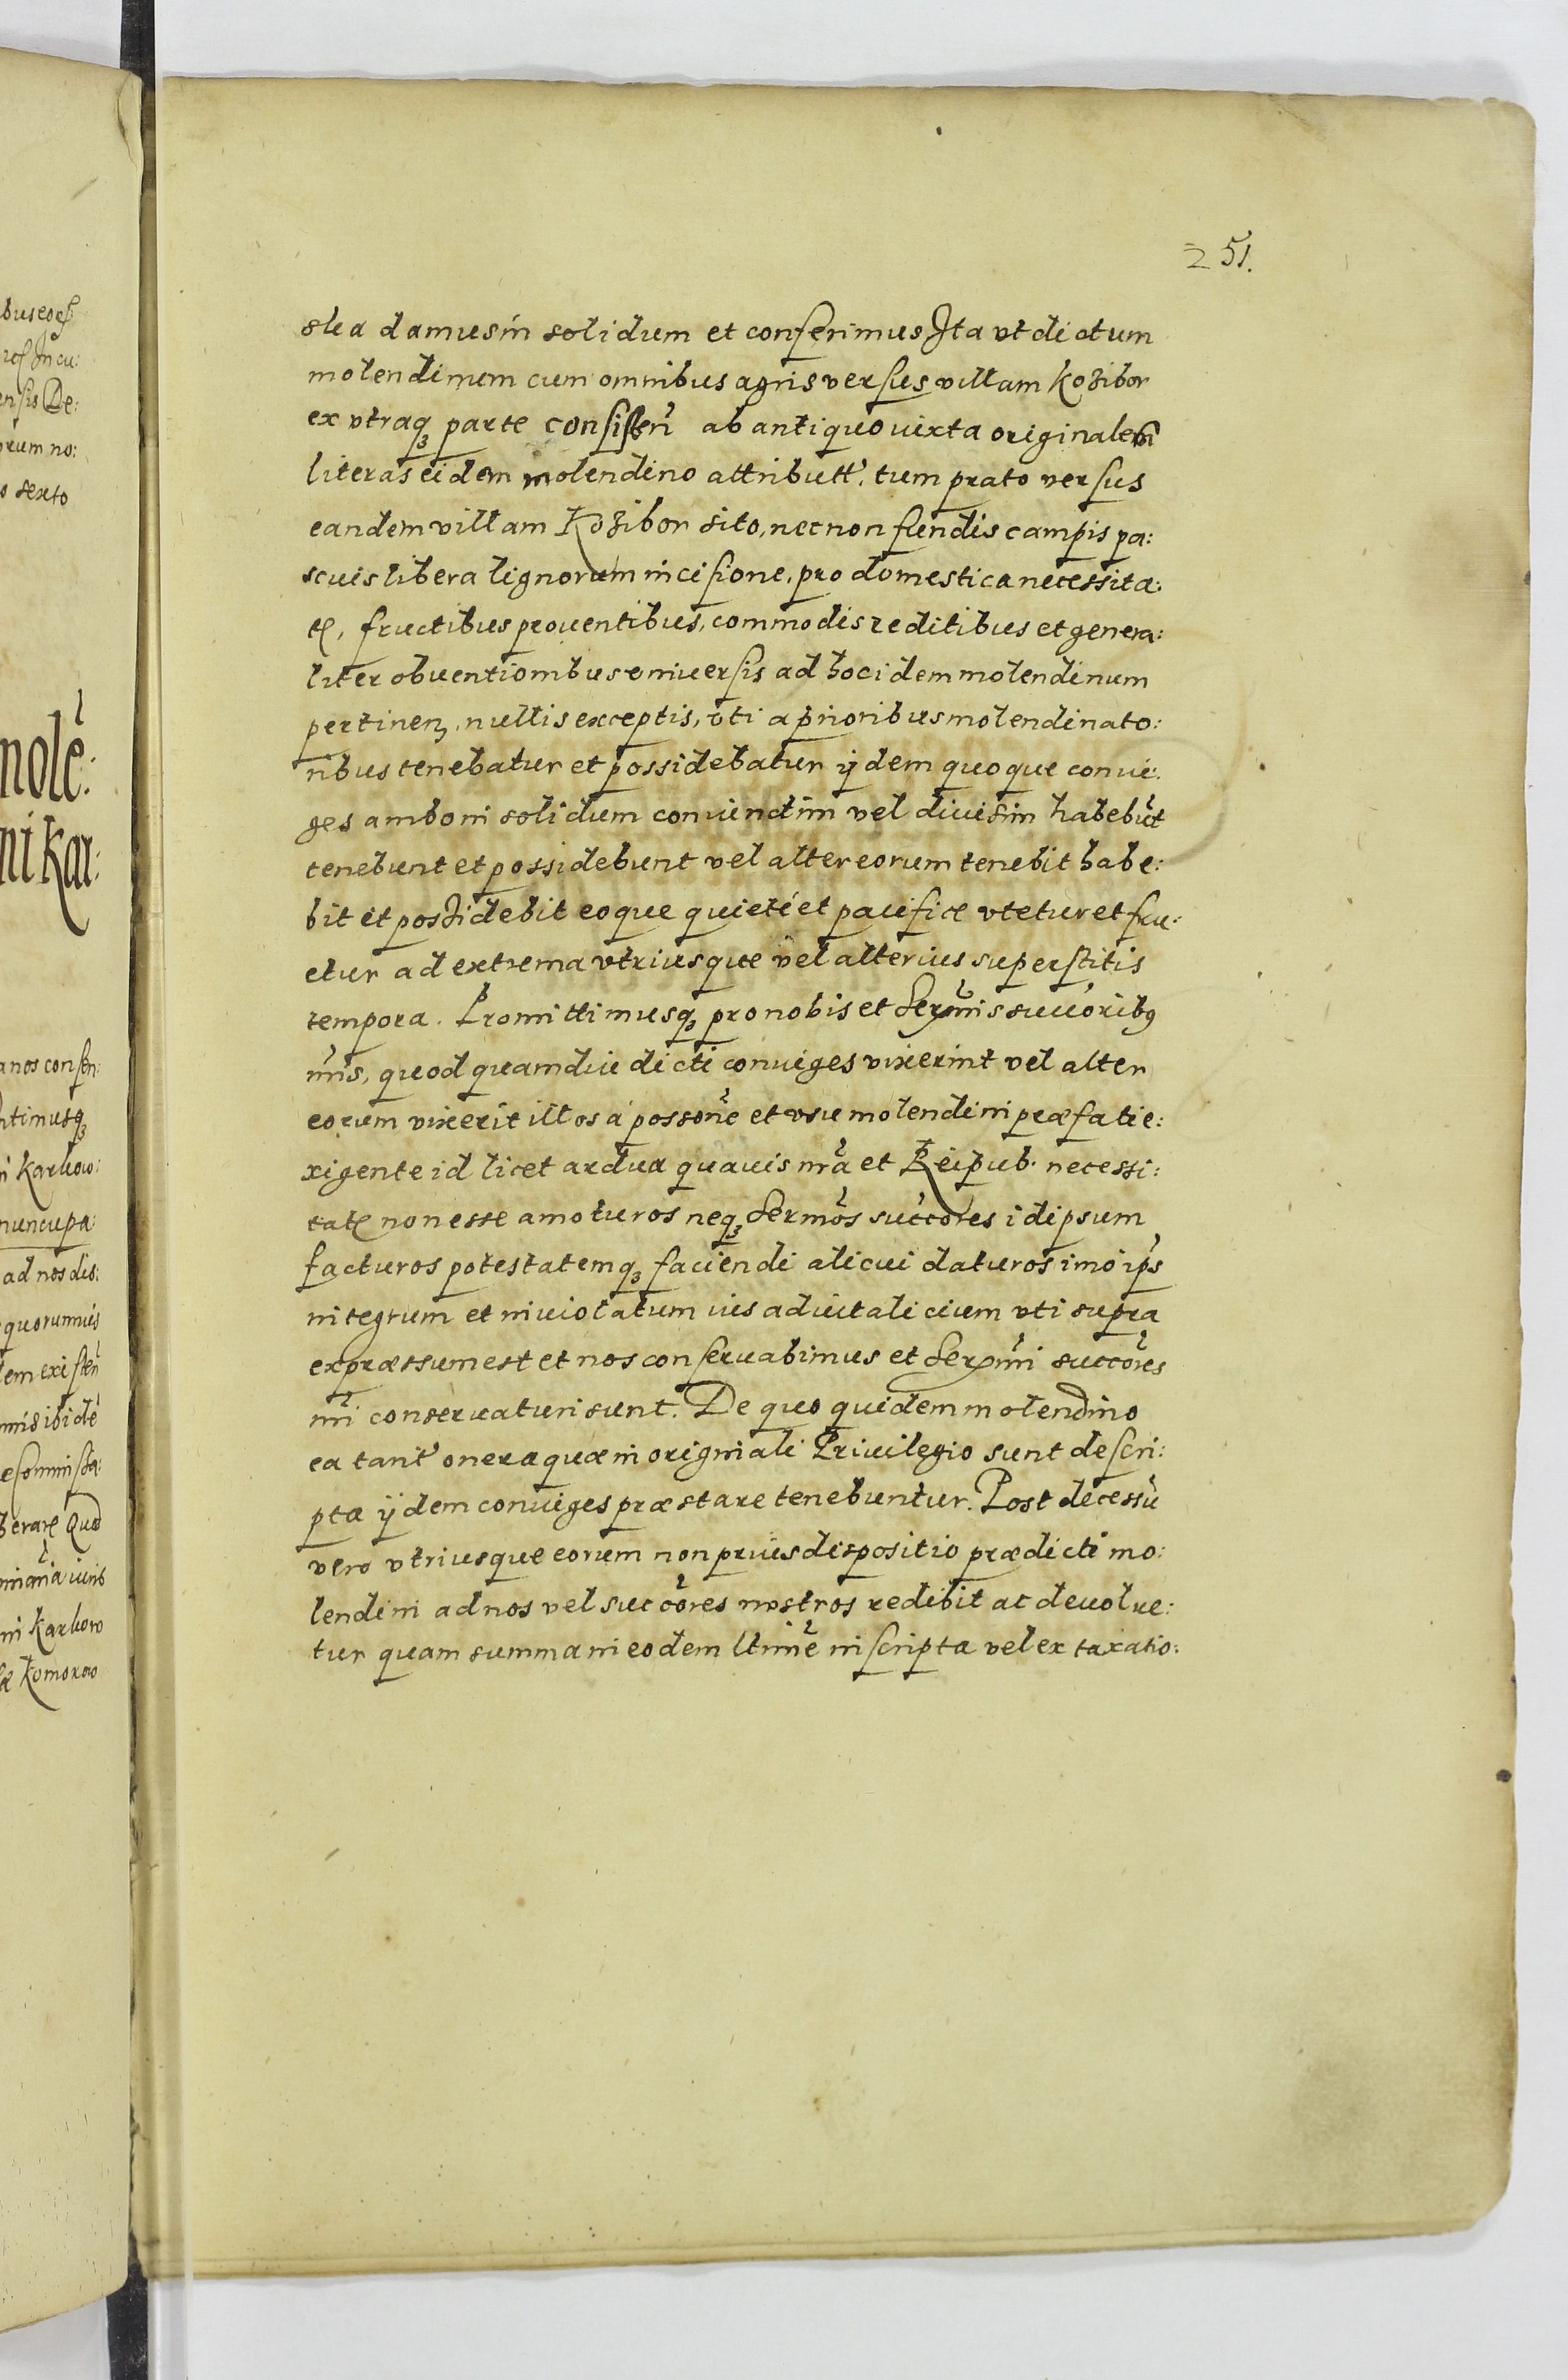 251.
slea damus in solidum et conferimus Ita vt dictum
molendinum cum omnibus agris versus villam Kozibor
ex vtraq₃ parte consisten̄ ab antiquo iuxta originalem
literas eidem molendino attributt. tum prato versus
eandem villam Kozibor sito, necnon fundis campis pa:
scuis libera lignorum incisione, pro domestica necessita:
te, fructibus prouentibus, commodis reditibus et genera:
liter obuentionibus vniuersis ad hoc idem molendinum
pertinen₃, nullis exceptis, vti a prioribus molendinato:
ribus tenebatur et possidebatur ijdem quoque coniu:
ges ambo in solidum coniunctim vel diuisim habebūt
tenebunt et possidebunt vel alter eorum tenebit habe:
bit et possidebit eoque quietè et pacifice vtetur et fru:
etur ad extrema vtriusque vel alterius superstitis
tempora. Promittimusq₃ pro nobis et Serm̄is succoribꝰ
nr̄is, quod quamdiu dicti coniuges vixerint vel alter
eorum vixerit illos à possōne et vsu molendini præfati e:
xigente id licet ardua quauis nr̄a et Reipub. necessi:
tate non esse amoturos neq₃ Sermōs succōres id ipsum
facturos potestatemq₃ faciendi alicui daturos imo ips
integrum et inuiolatum ius aduitalicium vti supra
expræssum est et nos conseruabimus et Serm̄i succōres
nr̄i conseruaturi sunt. De quo quidem molendino
ea tant onera quæ in originali Priuilegio sunt descri:
pta ijdem coniuges præstare tenebuntur. Post decessū
vero vtriusque eorum non prius dispositio prædicti mo:
lendini ad nos vel succōres nostros redibit ac deuolue:
tur quam summa in eodem inscripta vel ex taxatio: